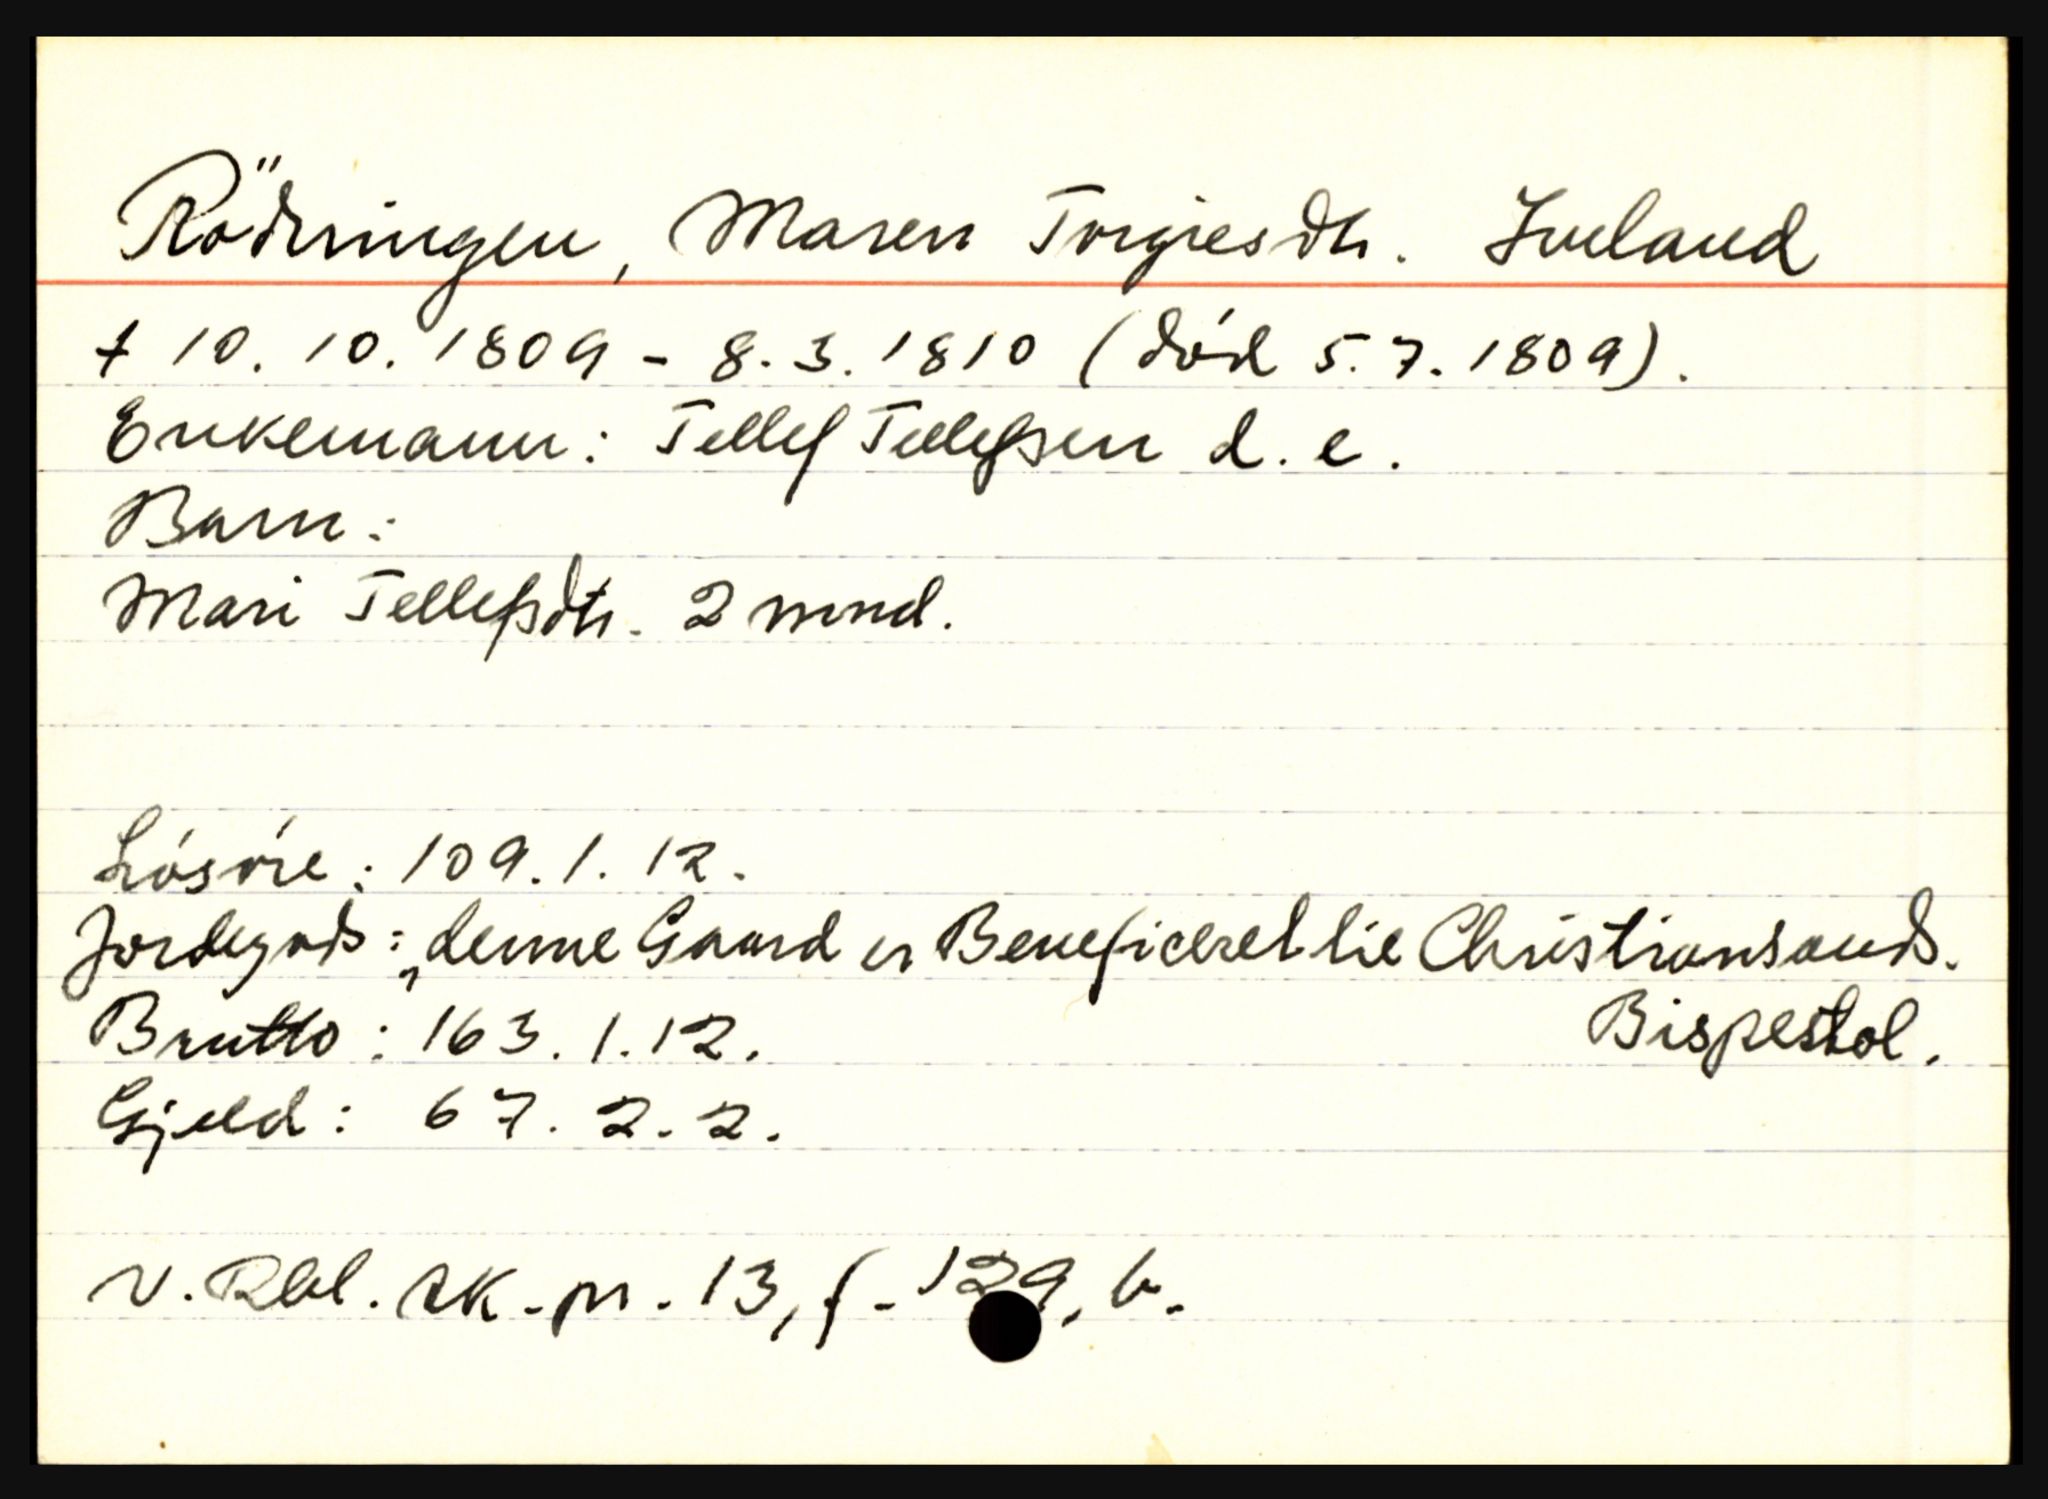 Rödningen, Maren Torgiesdtr. Iveland
† 10. 10. 1809 - 8. 3. 1810 (død 5. 7. 1809).
Enkemann: Tellef Tellefsen d. e.
Barn:
Mari Tellefsdtr. 2 mnd.
Løsøre: 109. 1. 12.
Jordegods: „denne Gaard er Beneficeret til Christiansands.
Bispestol.
Brutto: 163. 1. 12.
Gjeld: 67. 2. 2.
N. Rbl. sk. pr. 13, f. 129, b.